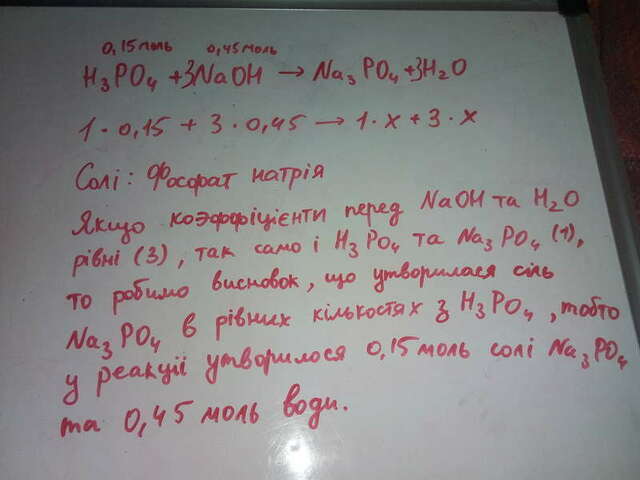 0,15 моль 0,45 моль
H₃PO₄ + 3NaOH → Na₃PO₄ + 3H₂O
1 · 0,15 + 3 · 0,45 → 1 · x + 3 · x
Солі: Фосфат натрія
Якщо коэффіцієнти перед NaOH та H₂O
рівні (3), так само і H₃PO₄ та Na₃PO₄ (1),
то робимо висновок, що утворилася сіль
Na₃PO₄ в рівних кількостях з H₃PO₄, тобто
у реакції утворилося 0,15 моль солі Na₃PO₄
та 0,45 моль води.